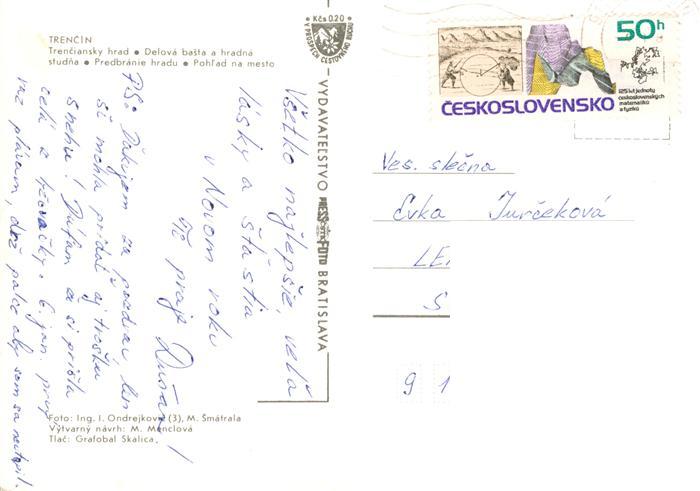 TRENČÍN
Trenčiansky hrad • Delová bašta a hradná
studňa • Predbránie hradu • Pohľad na mesto
Kčs 0.20
V PROSPECH CESTOVNÉHO RUCHU
VYDAVATEĽSTVO PRESSFOTO BRATISLAVA
50h
ČESKOSLOVENSKO
125 let jednoty
československých
matematiků
a fyziků
Všetko najlepšie, veľa
lásky a šťastia
v Novom roku
Ti praje Dušan!
PS: Ďakujem za pozdrav, len
si mohla pridať aj trošku
snehu! Dúfam že si prišla
celá z lyžovačky. 6. jan. prvý
raz plávam, drž palce aby som sa neutopil.
Ves. slečna
Evka Jurčeková
LE
S
9 1
Foto: Ing. I. Ondrejková (3), M. Šmátrala
Výtvarný návrh: M. Menclová
Tlač: Grafobal Skalica